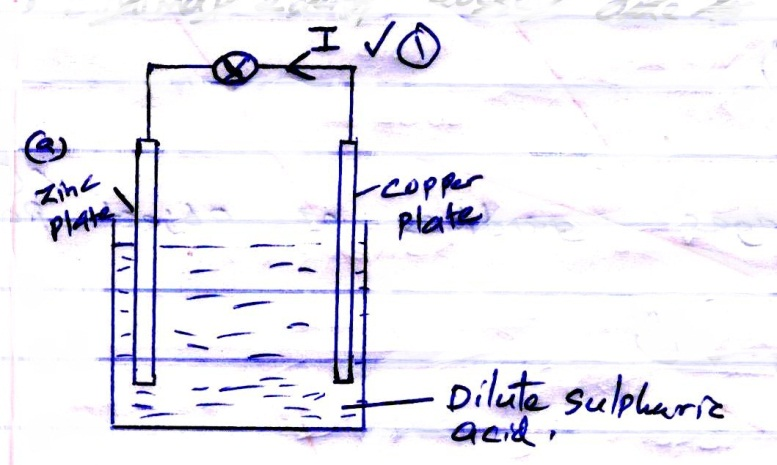 I ✓ ①
(a)
Zinc
plate
copper
plate
Dilute sulphuric
acid.